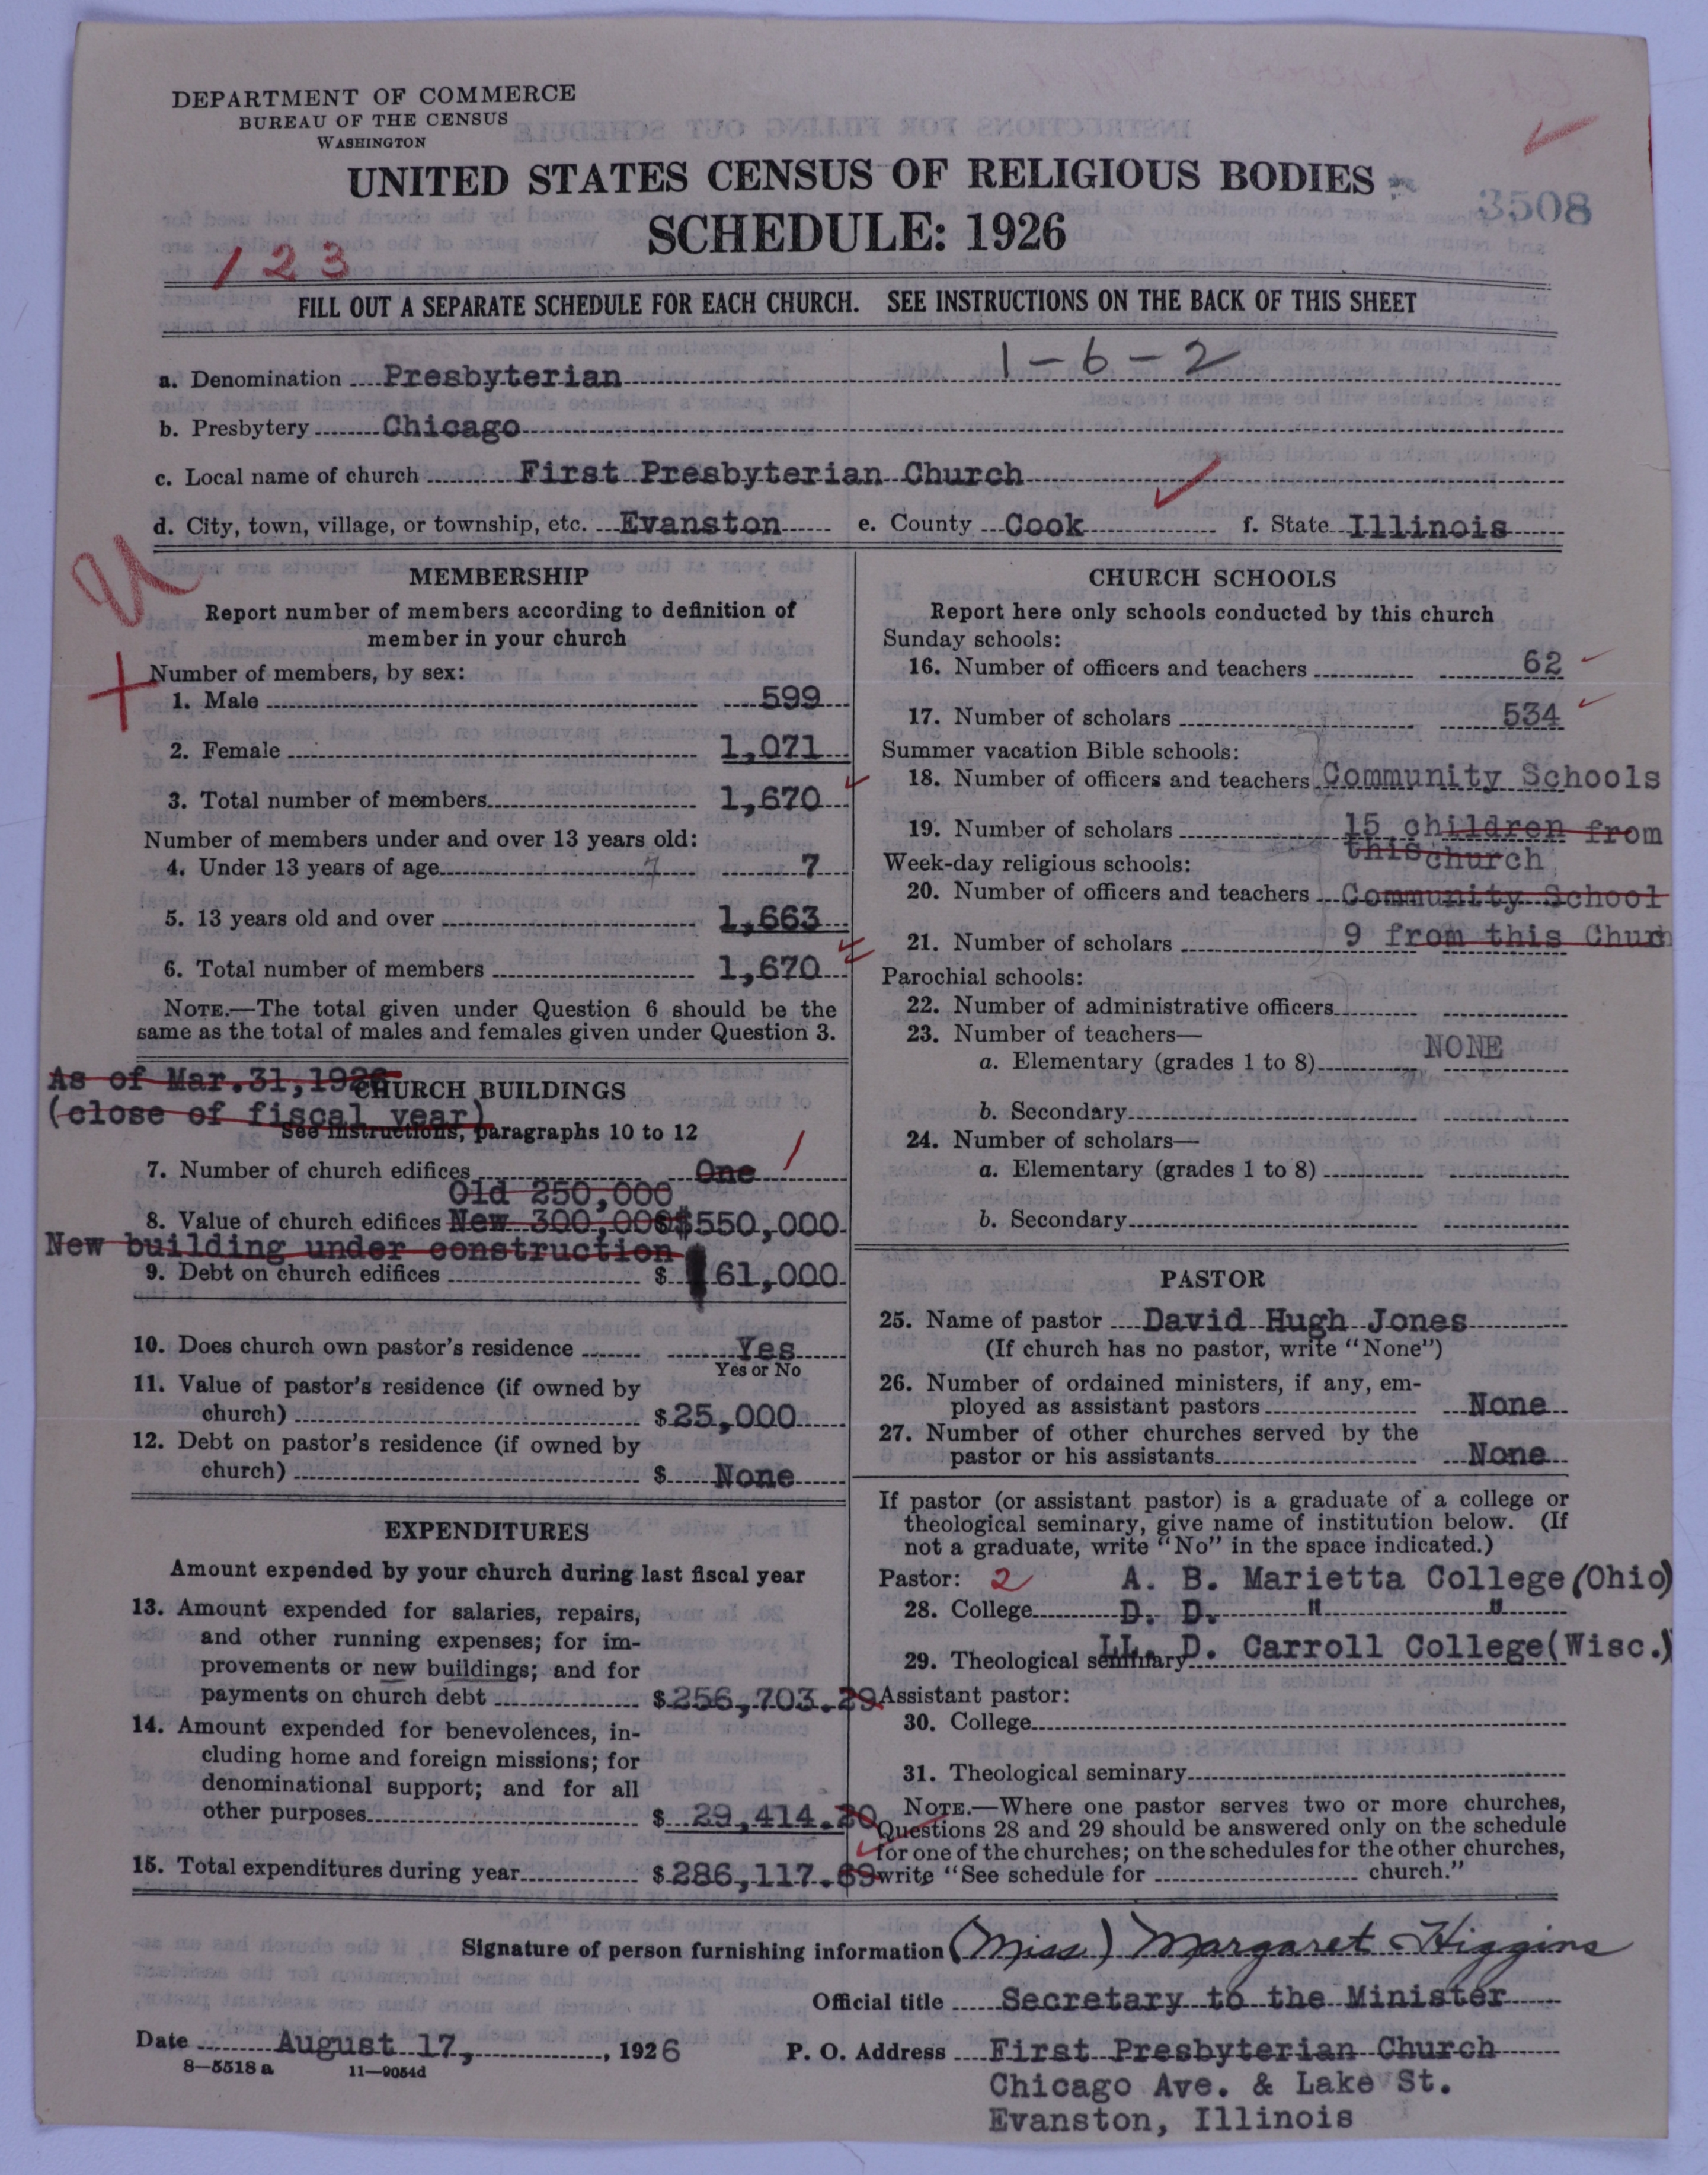 DEPARTMENT OF COMMERCE
BUREAU OF THE CENSUS
WASHINGTON
UNITED STATES CENSUS OF RELIGIOUS BODIES
SCHEDULE: 1926
3508
123
FILL OUT A SEPARATE SCHEDULE FOR EACH CHURCH. SEE INSTRUCTIONS ON THE BACK OF THIS SHEET
1-6-2
a. Denomination Presbyterian
b. Presbytery Chicago
c. Local name of church First Presbyterian Church
d. City, town, village, or township, etc. Evanston e. County Cook f. State Illinois
MEMBERSHIP
Report number of members according to definition of
member in your church
Number of members, by sex:
1. Male 599
2. Female 1,071
3. Total number of members 1,670
Number of members under and over 13 years old:
4. Under 13 years of age 7 7
5. 13 years old and over 1,663
6. Total number of members 1,670
NOTE.—The total given under Question 6 should be the
same as the total of males and females given under Question 3.
As of Mar.31,1926
(close of fiscal year)
CHURCH BUILDINGS
See instructions, paragraphs 10 to 12
7. Number of church edifices One 1
Old 250,000
8. Value of church edifices New 300,000 $550,000
New building under construction
9. Debt on church edifices $ 61,000
10. Does church own pastor's residence Yes
Yes or No
11. Value of pastor's residence (if owned by
church) $25,000
12. Debt on pastor's residence (if owned by
church) $ None
EXPENDITURES
Amount expended by your church during last fiscal year
13. Amount expended for salaries, repairs,
and other running expenses; for im-
provements or new buildings; and for
payments on church debt $256,703.29
14. Amount expended for benevolences, in-
cluding home and foreign missions; for
denominational support; and for all
other purposes $ 29,414.20
15. Total expenditures during year $286,117.69
CHURCH SCHOOLS
Report here only schools conducted by this church
Sunday schools:
16. Number of officers and teachers 62
17. Number of scholars 534
Summer vacation Bible schools:
18. Number of officers and teachers Community Schools
19. Number of scholars 15 children from
this church
Week-day religious schools:
20. Number of officers and teachers Community School
21. Number of scholars 9 from this Church
Parochial schools:
22. Number of administrative officers
23. Number of teachers—
a. Elementary (grades 1 to 8) NONE
b. Secondary
24. Number of scholars—
a. Elementary (grades 1 to 8)
b. Secondary
PASTOR
25. Name of pastor David Hugh Jones
(If church has no pastor, write "None")
26. Number of ordained ministers, if any, em-
ployed as assistant pastors None
27. Number of other churches served by the
pastor or his assistants None
If pastor (or assistant pastor) is a graduate of a college or
theological seminary, give name of institution below. (If
not a graduate, write "No" in the space indicated.)
Pastor: 2 A. B. Marietta College (Ohio)
28. College D. D. " "
29. Theological seminary LL. D. Carroll College(Wisc.)
Assistant pastor:
30. College
31. Theological seminary
NOTE.—Where one pastor serves two or more churches,
Questions 28 and 29 should be answered only on the schedule
for one of the churches; on the schedules for the other churches,
write "See schedule for church."
Signature of person furnishing information (Miss) Margaret Higgins
Official title Secretary to the Minister
Date August 17, , 1926 P. O. Address First Presbyterian Church
8—5518 a 11—9054d
Chicago Ave. & Lake St.
Evanston, Illinois